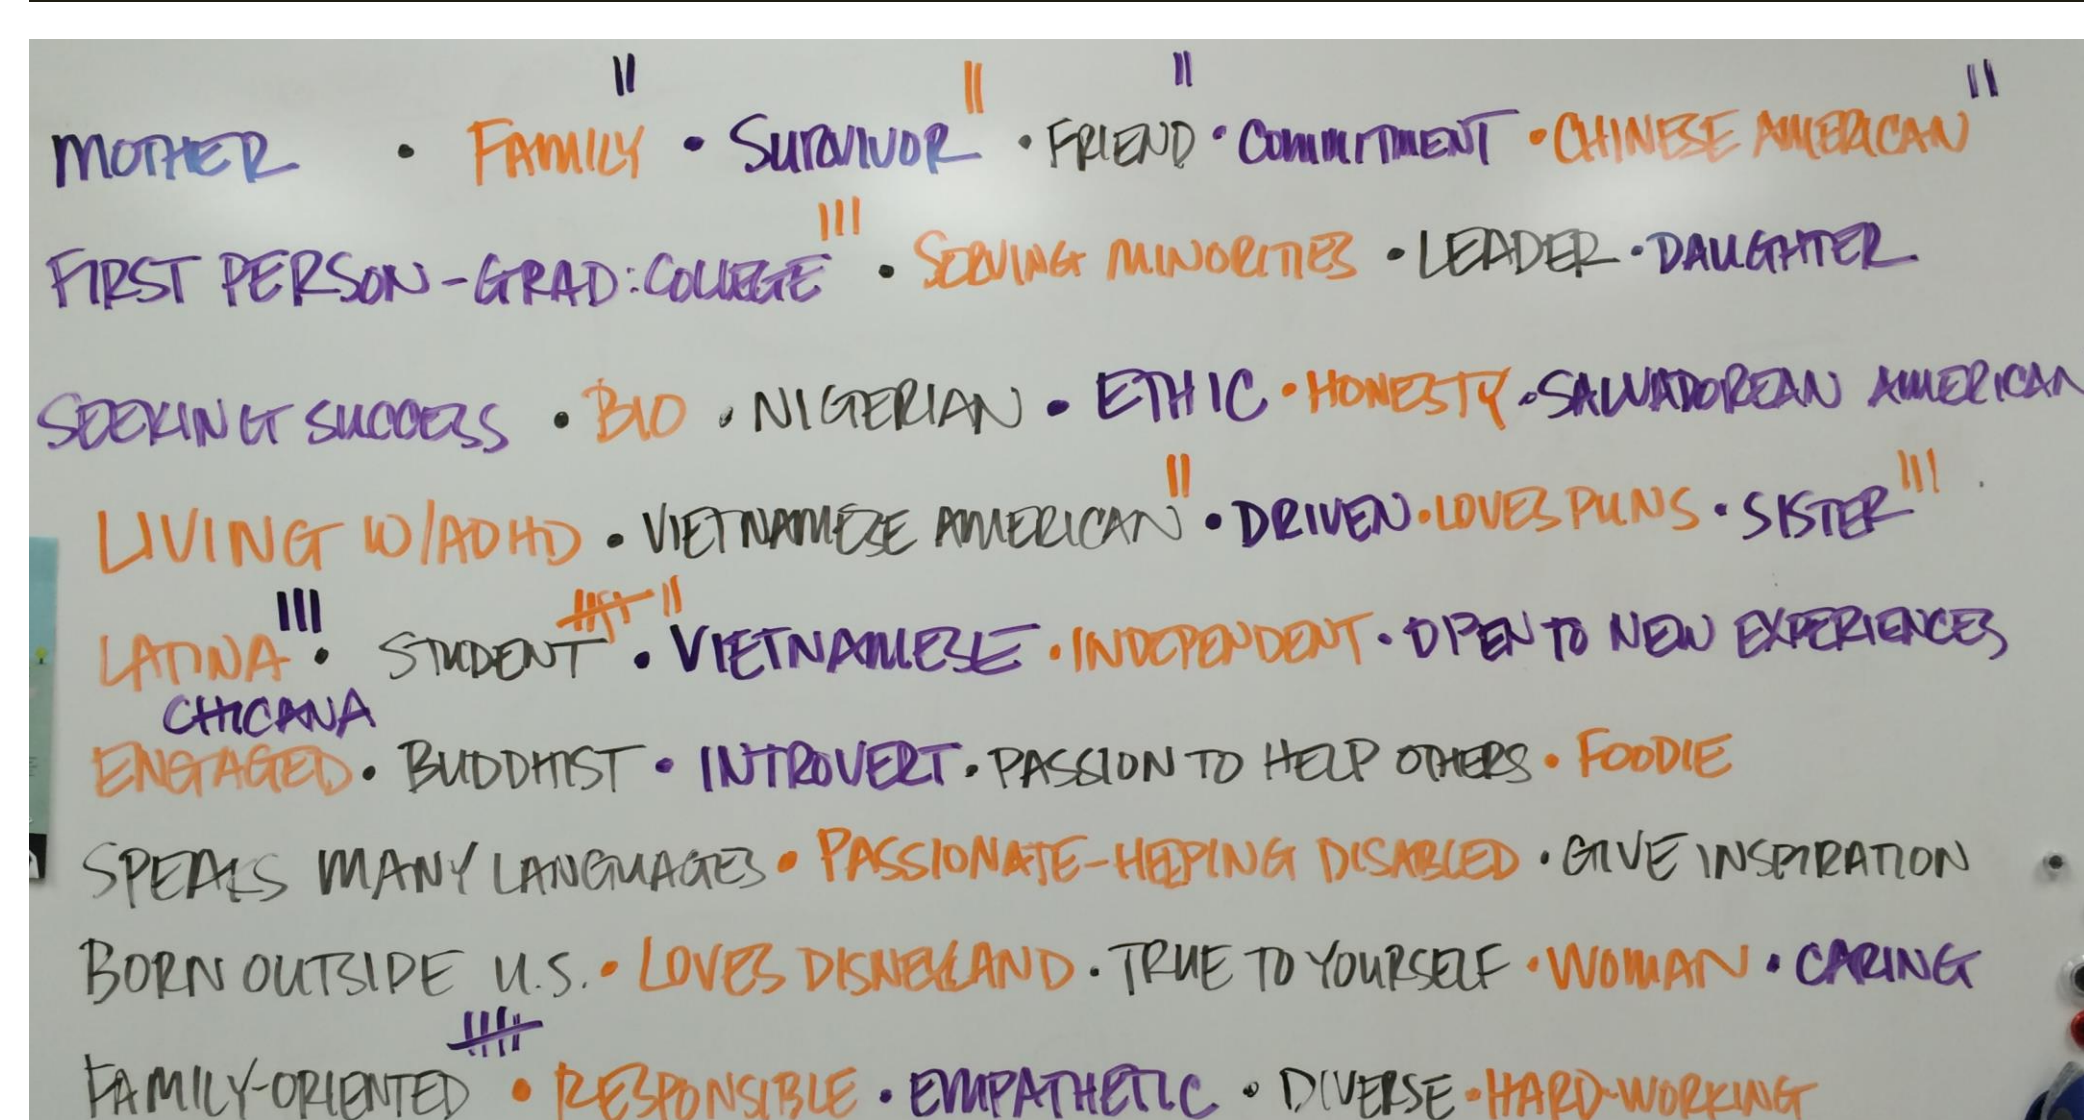 MOTHER • FAMILY || • SURVIVOR || • FRIEND || • COMMITMENT • CHINESE AMERICAN ||
FIRST PERSON - GRAD: COLLEGE ||| • SERVING MINORITIES • LEADER • DAUGHTER
SEEKING SUCCESS • BIO • NIGERIAN • ETHIC • HONESTY • SALVADOREAN AMERICAN
LIVING W/ADHD • VIETNAMESE AMERICAN || • DRIVEN • LOVES PUNS • SISTER |||
LATINA ||| • STUDENT |||| || • VIETNAMESE • INDEPENDENT • OPEN TO NEW EXPERIENCES
CHICANA
ENGAGED • BUDDHIST • INTROVERT • PASSION TO HELP OTHERS • FOODIE
SPEAKS MANY LANGUAGES • PASSIONATE - HELPING DISABLED • GIVE INSPIRATION
BORN OUTSIDE U.S. • LOVES DISNEYLAND • TRUE TO YOURSELF • WOMAN • CARING
FAMILY-ORIENTED |||| • RESPONSIBLE • EMPATHETIC • DIVERSE • HARD-WORKING